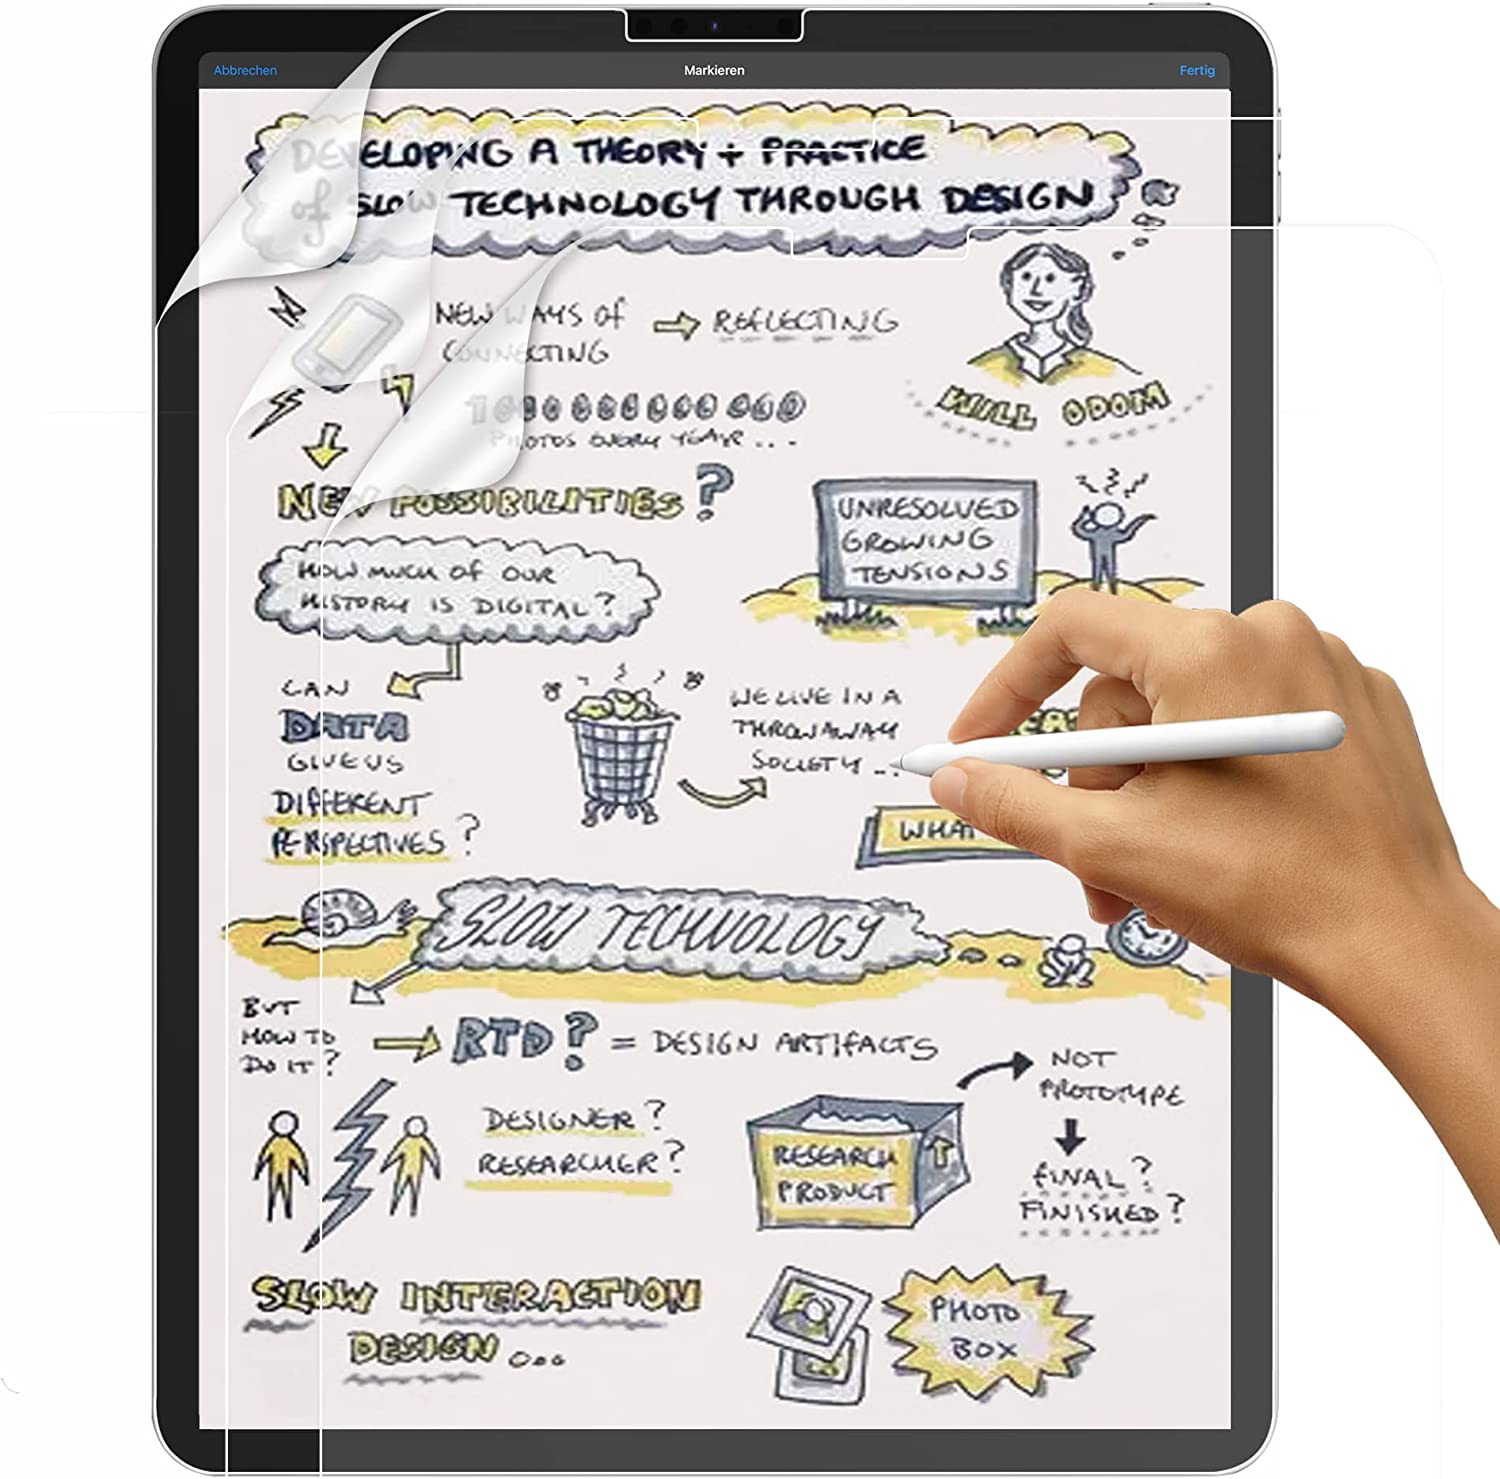 Abbrechen Markieren Fertig
DEVELOPING A THEORY + PRACTICE
of SLOW TECHNOLOGY THROUGH DESIGN
NEW WAYS OF
CONNECTING
→ REFLECTING
WILL ODOM
PHOTOS EVERY YEAR...
NEW POSSIBILITIES?
UNRESOLVED
GROWING
TENSIONS
HOW MUCH OF OUR
HISTORY IS DIGITAL?
CAN
DATA
GIVE US
DIFFERENT
PERSPECTIVES?
WE LIVE IN A
THROWAWAY
SOCIETY...
SLOW TECHNOLOGY
BUT
HOW TO
DO IT?
RTD? = DESIGN ARTIFACTS
NOT
PROTOTYPE
DESIGNER?
RESEARCHER?
RESEARCH
PRODUCT
FINAL?
FINISHED?
SLOW INTERACTION
DESIGN...
PHOTO
BOX